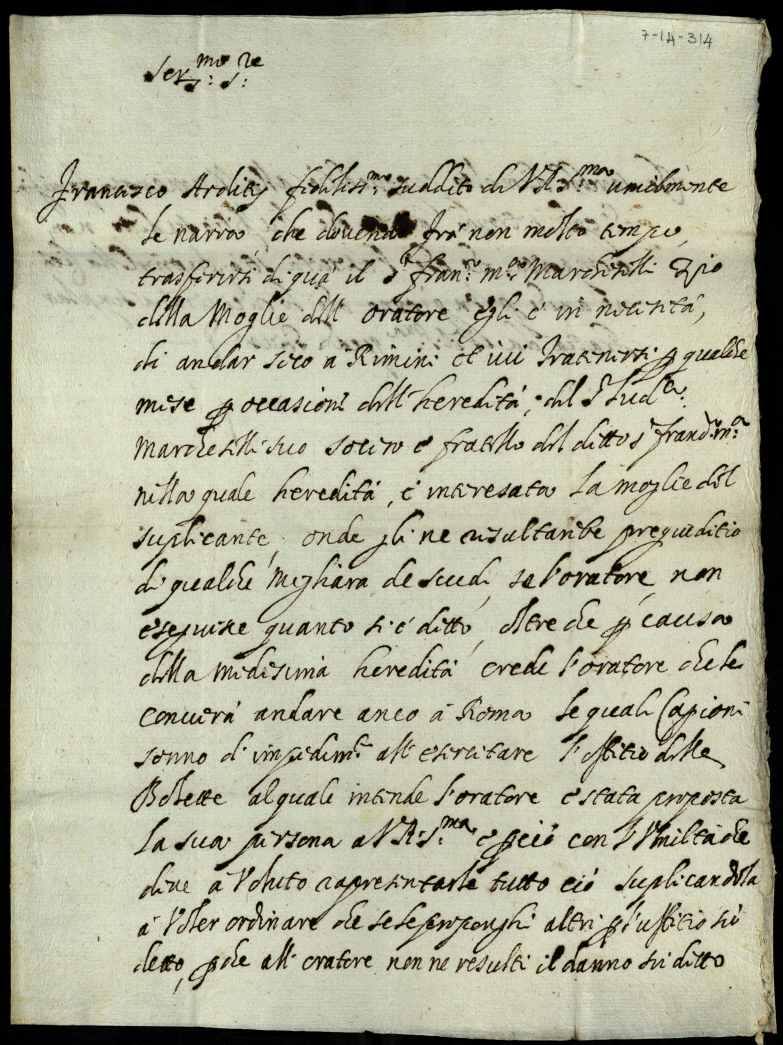 7-14-314
Ser.mo S.re
Francesco Ardizij fidelis.mo suddito di V.A.S.ma umilmente
le narra, che dovendo frà non molto tempo,
trasferirsi di quà il S.r Fran.co M.a Marchesilli Zio
della Moglie dell oratore egli è in necesità,
di andar seco a Rimini et ivi tratenersi p qualche
mese p occasioni dell heredità, del S.r Lud.co
Marchesilli suo socero e fratello del ditto S.r Fran.co M.a
nella quale heredità, è interesata la moglie del
suplicante, onde gli ne risultaribe pregiuditio
di qualche Migliara de scudi, se l'oratore, non
eseguise quanto si è ditto, oltre che p causa
della Medesima heredità crede l'oratore che le
converà andare anco à Roma le quali Cagioni
sonno di impedim.to all esercitare l'offitio delle
Bolette al quale intende l'oratore è stata proposta
la sua persona a V.A.S.ma e p ciò con l'Umiltà che
deve à Voluto rapresentarle tutto ciò suplicandola
à Voler ordinare che se le proponghi altri p l'uffitio su
detto, p che all oratore non ne resulti il danno su ditto